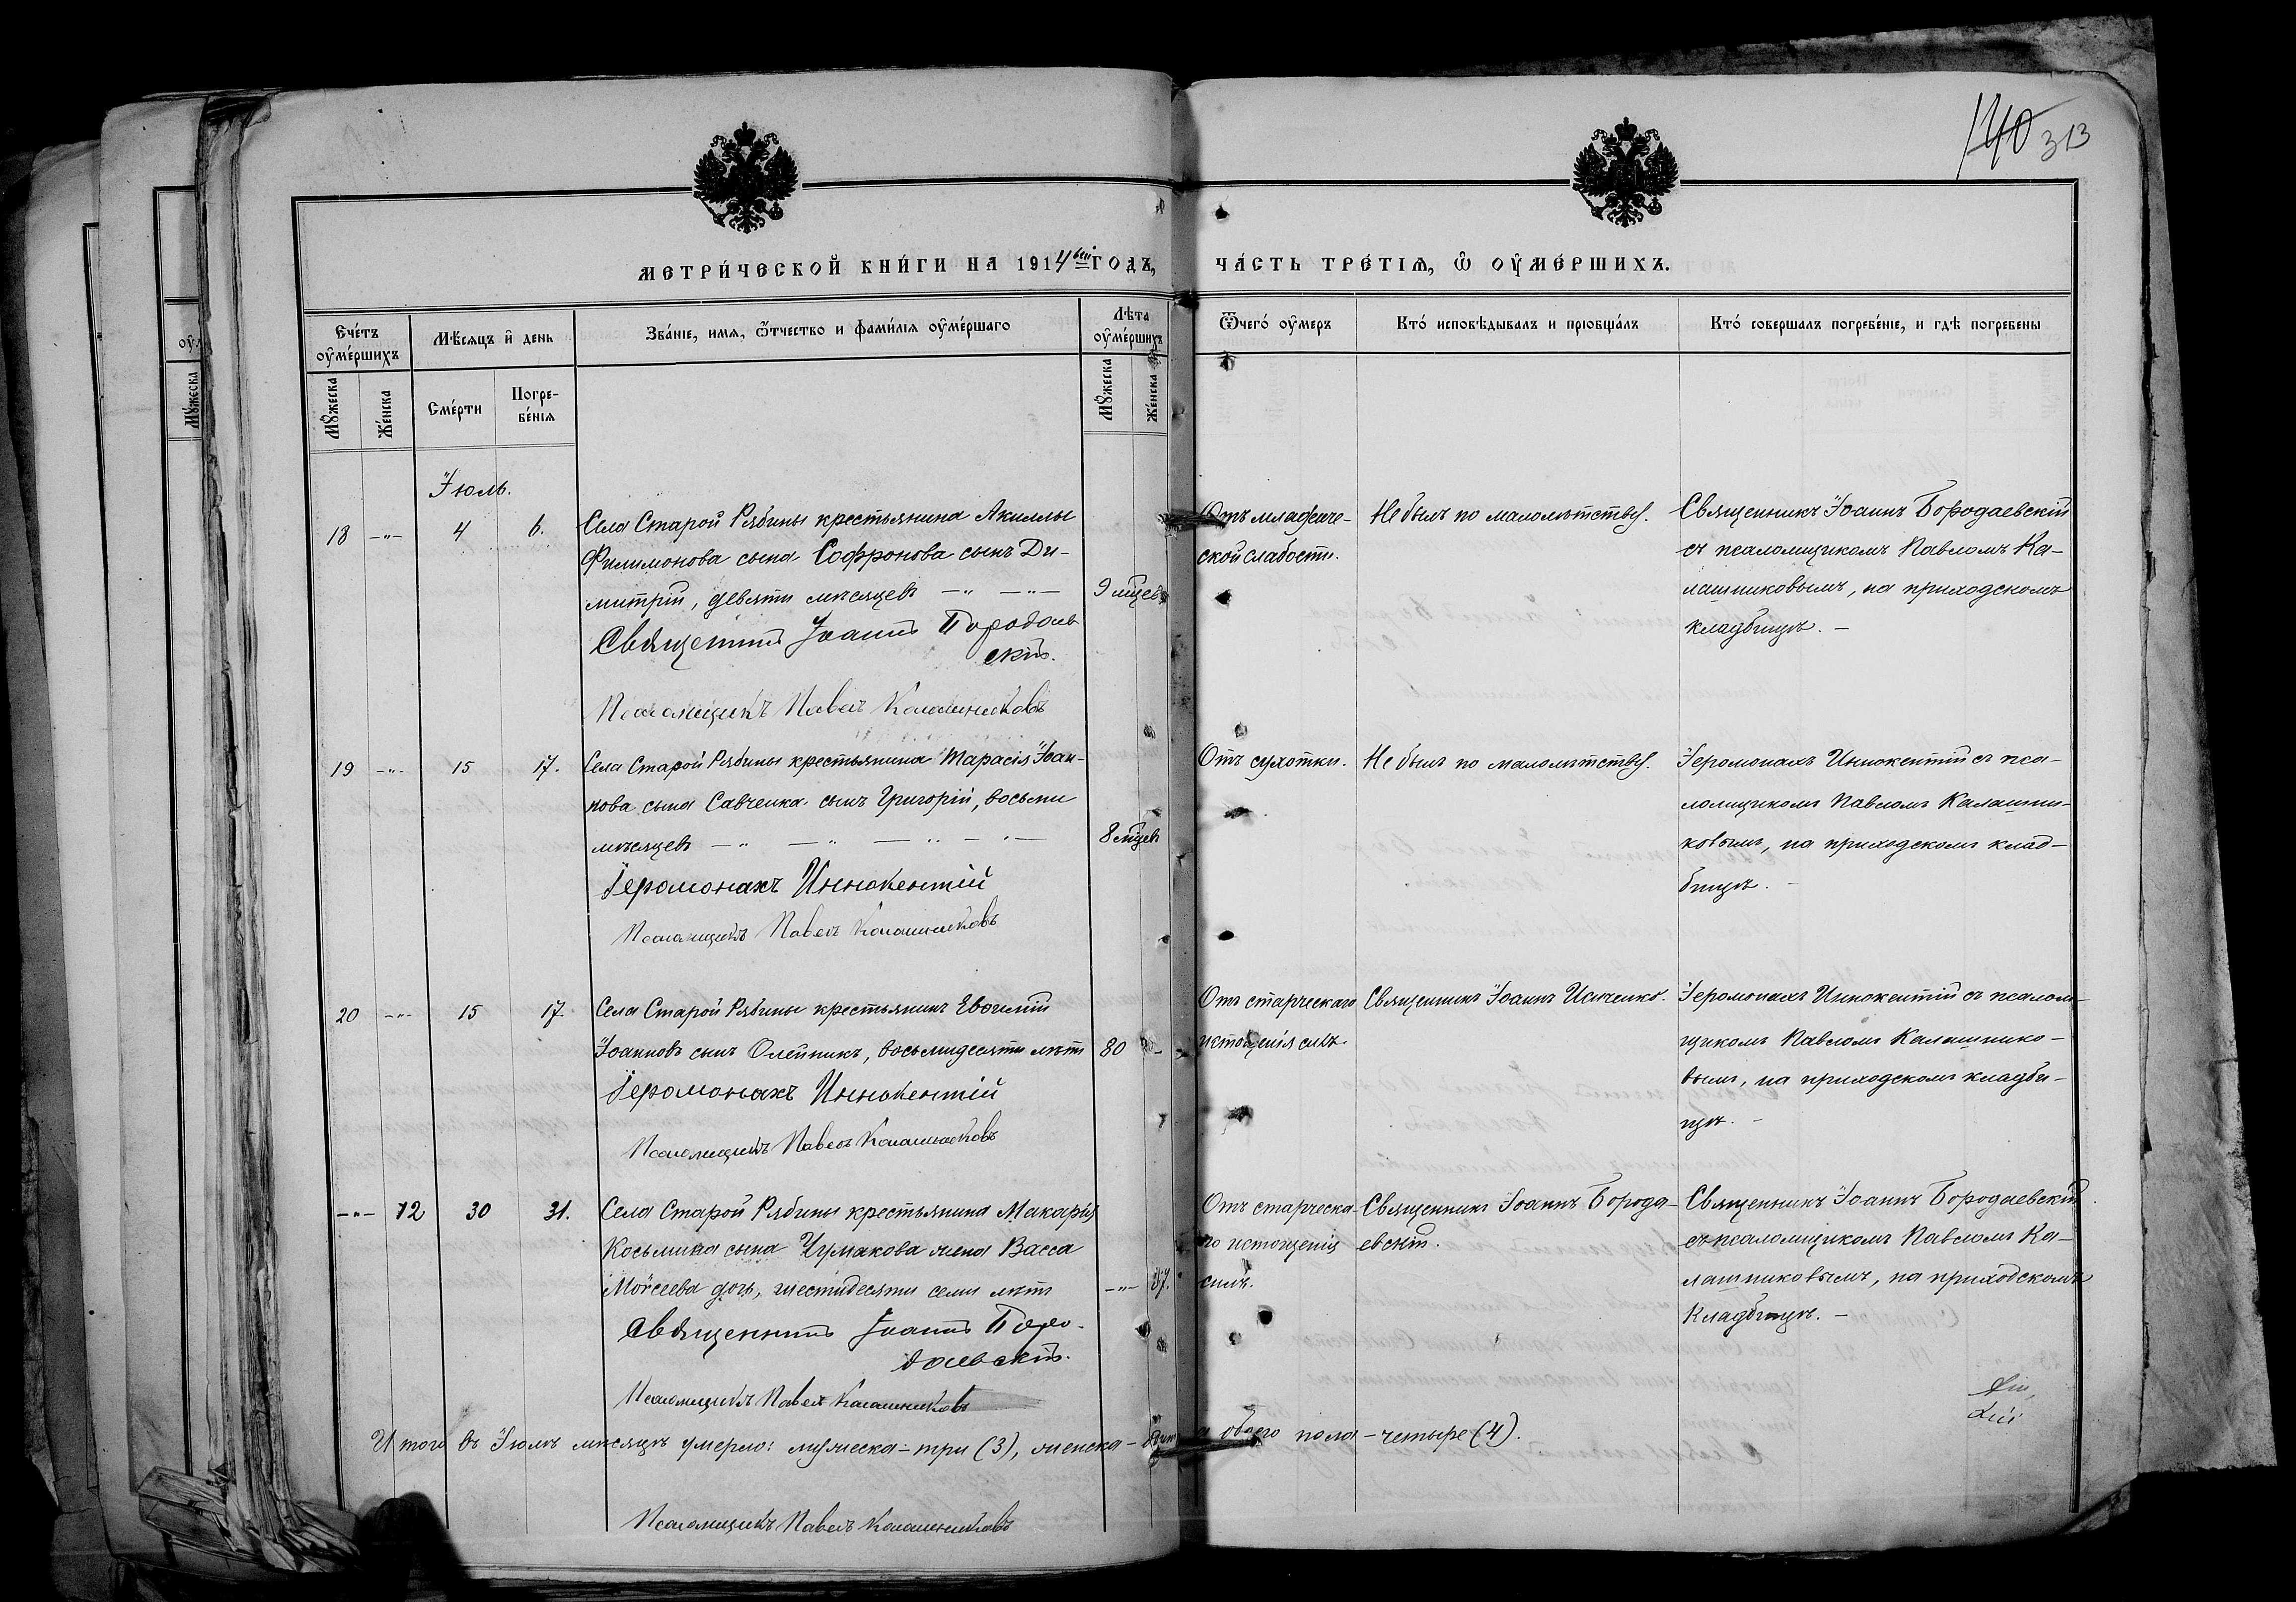 140 313
МЕТРИ́ЧЕСКОЙ КНИ́ГИ НА 1914ый ГОДЪ, ЧА́СТЬ ТРЕ́ТІѦ, Ѿ ОУ҆МЕ́РШИХЪ.
Счéтъ оу҆мéршихъ
Мѣ́сѧцъ и҆ день
Звáнїе, имѧ, ѻ҆́тчество и фами́лїѧ оу҆мéршаго
Лѣ́та оу҆мéршихъ
Ѿчегó оу҆меръ
Ктó исповѣ́дывалъ и прїобщáлъ
Ктó совершáлъ погребéнїе, и гдѣ̀ погребены
Мꙋ́жеска
Же́нска
Смéрти
Погре-
бéнїѧ
Мꙋ́жеска
Же́нска
Іюль.
18 -"- 4 6. Села Старой Рябины крестьянина Акиллы
Филимонова сына Софронова сынъ Ди-
митрій, девяти мѣсяцевъ -"- -"- 9 мѣцевъ
Священникъ Іоаннъ Бородаев
скій.
Псаломщикъ Павелъ Калашниковъ
Отъ младенче-
ской слабости.
Не былъ по малолѣтству.
Священникъ Іоаннъ Бородаевскій
съ псаломщикомъ Павломъ Ка-
лашниковымъ, на приходскомъ
кладбищѣ. -
19 -"- 15 17. Села Старой Рябины крестьянина Тарасія Іоан-
нова сына Савченка сынъ Григорій, восьми
мѣсяцевъ -"- -"- 8 мѣцевъ
Іеромонахъ Иннокентій
Псаломщикъ Павелъ Калашниковъ
Отъ сухотки.
Не былъ по малолѣтству.
Іеромонахъ Иннокентій съ пса-
ломщикомъ Павломъ Калашни-
ковымъ, на приходскомъ клад-
бищѣ. -
20 -"- 15 17 Села Старой Рябины крестьянинъ Евѳимій
Іоанновъ сынъ Олейникъ, восьмидесяти лѣтъ 80 -
Іеромонахъ Иннокентій
Псаломщикъ Павелъ Калашниковъ
Отъ старческаго
истощенія силъ.
Священникъ Іоаннъ Исиченко.
Іеромонахъ Иннокентій съ псалом-
щикомъ Павломъ Калашнико-
вымъ, на приходскомъ кладби-
щѣ. -
-"- 12 30 31. Села Старой Рябины крестьянина Макарія
Косьмина сына Чумакова жена Васса
Моѵсеева дочь, шестидесяти семи лѣтъ -"- 67.
Священникъ Іоаннъ Боро-
даевскій.
Псаломщикъ Павелъ Калашниковъ
Отъ старческа-
го истощенія
силъ.
Священникъ Іоаннъ Борода-
евскій.
Священникъ Іоаннъ Бородаевскій
съ псаломщикомъ Павломъ Ка-
лашниковымъ, на приходскомъ
кладбищѣ. -
Итого въ Іюлѣ мѣсяцѣ умерло: мужеска - три (3), женска - одна, а обоего пола - четыре (4).
Псаломщикъ Павелъ Калашниковъ